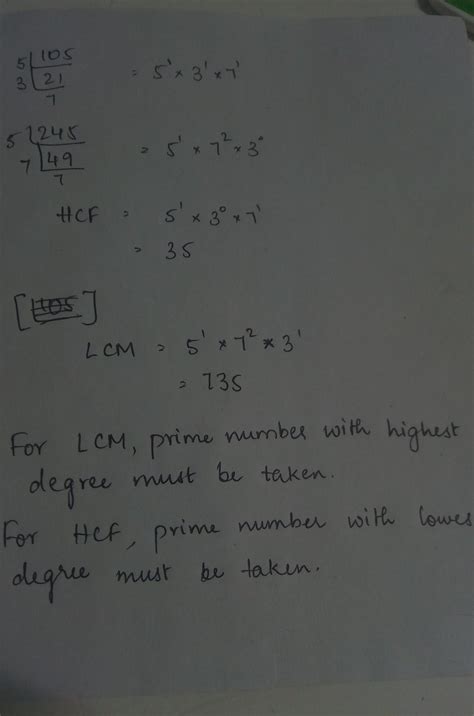 5 105
3 21 = 5¹ × 3¹ × 7¹
7
5 245
7 49 = 5¹ × 7² × 3⁰
7
HCF = 5¹ × 3⁰ × 7¹
= 35
[ ]
LCM = 5¹ × 7² × 3¹
= 735
For LCM, prime number with highest
degree must be taken.
For HCF, prime number with lowes
degree must be taken.